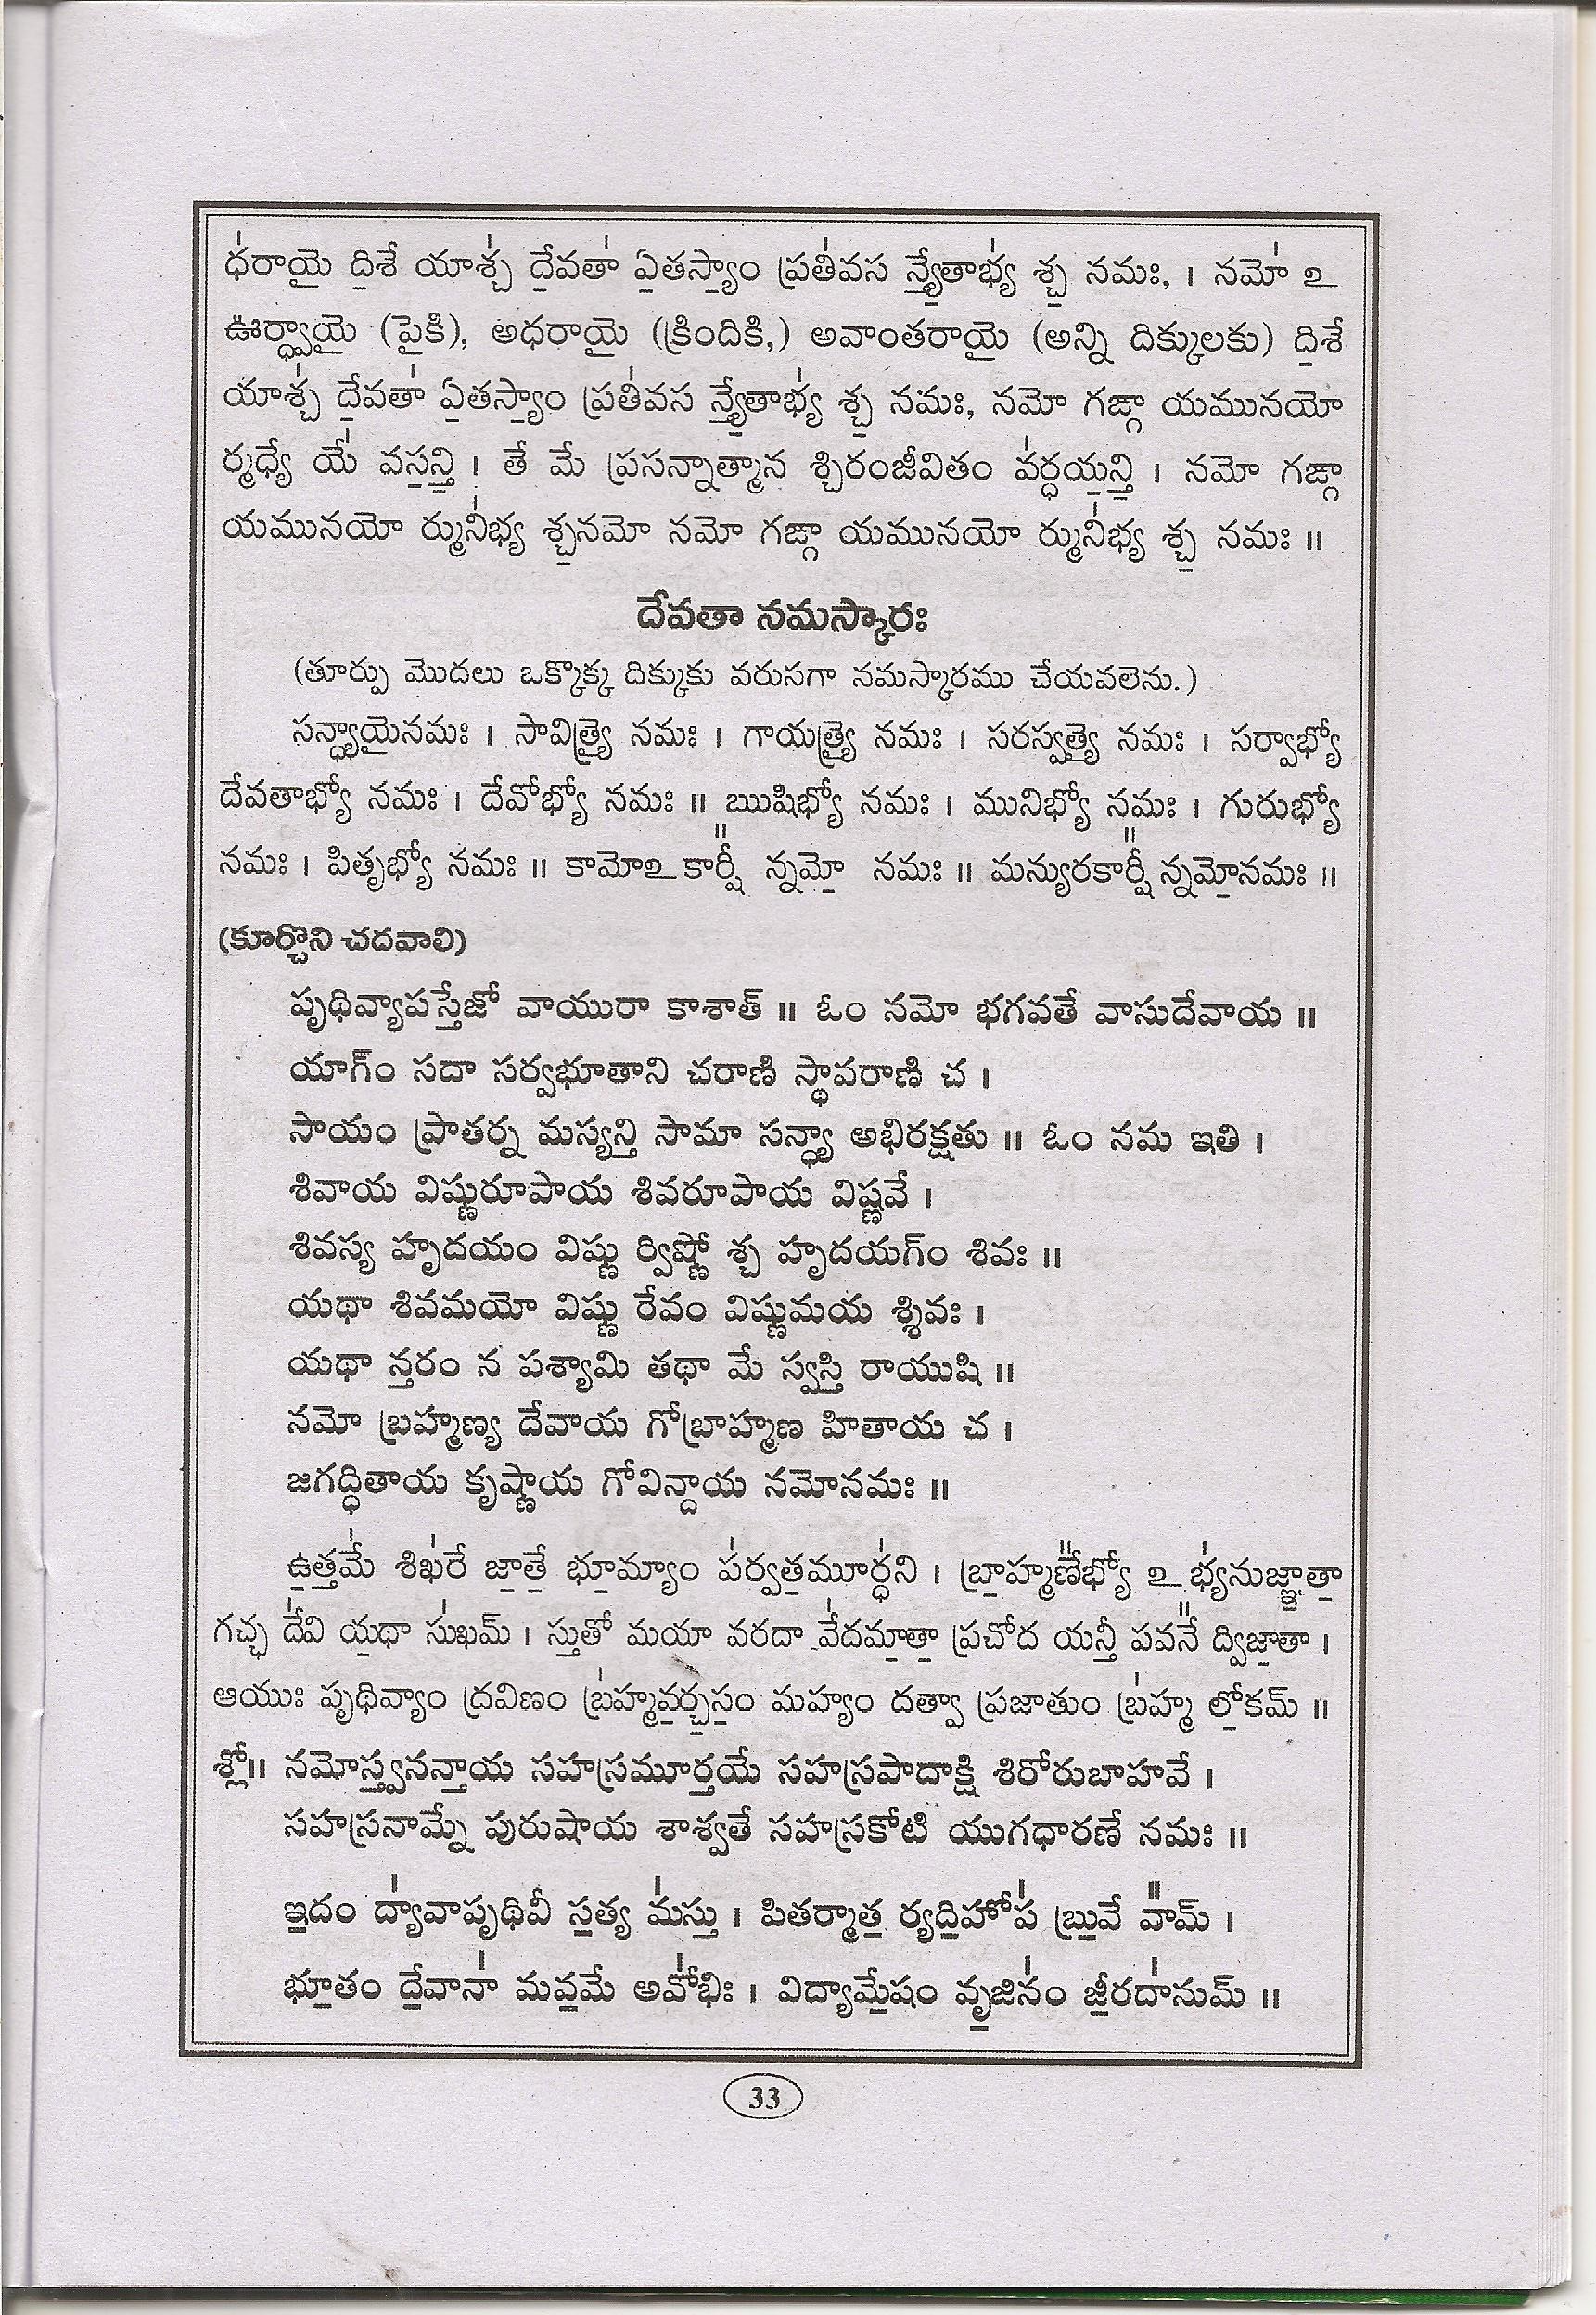 ధ॑రాయై ది॒శే యాశ్చ॑ దే॒వతా॑ ఏ॒తస్యాం॒ ప్రతి॑వస న్త్యే॒తాభ్య॑ శ్చ॒ నమః, । నమో॑ ఽ
ఊర్ధ్వాయై (పైకి), అధరాయై (క్రిందికి,) అవాంతరాయై (అన్ని దిక్కులకు) ది॒శే
యాశ్చ॑ దే॒వతా॑ ఏ॒తస్యాం॒ ప్రతి॑వస న్త్యే॒తాభ్య॑ శ్చ॒ నమః, నమో గఙ్గా యమునయో
ర్మధ్యే యే॑ వస॒న్తి॒ । తే మే ప్రసన్నాత్మాన శ్చిరంజీవితం వ॑ర్ధయ॒న్తి॒ । నమో గఙ్గా
యమునయో ర్ముని॑భ్య శ్చ॒నమో నమో గఙ్గా యమునయో ర్ముని॑భ్య శ్చ॒ నమః ॥
దేవతా నమస్కారః
(తూర్పు మొదలు ఒక్కొక్క దిక్కుకు వరుసగా నమస్కారము చేయవలెను.)
సన్ధ్యాయైనమః । సావిత్ర్యై నమః । గాయత్ర్యై నమః । సరస్వత్యై నమః । సర్వాభ్యో
దేవతాభ్యో నమః । దేవోభ్యో నమః ॥ ఋషిభ్యో నమః । మునిభ్యో నమః । గురుభ్యో
నమః । పితృభ్యో నమః ॥ కామోఽ కార్షీ᳚ న్నమో॒ నమః ॥ మన్యురకార్షీ᳚ న్నమో॒నమః ॥
(కూర్చొని చదవాలి)
పృథివ్యాపస్తేజో వాయురా కాశాత్ ॥ ఓం నమో భగవతే వాసుదేవాయ ॥
యాగ్‌ం సదా సర్వభూతాని చరాణి స్థావరాణి చ ।
సాయం ప్రాతర్న మస్యన్తి సామా సన్ధ్యా అభిరక్షతు ॥ ఓం నమ ఇతి ।
శివాయ విష్ణురూపాయ శివరూపాయ విష్ణవే ।
శివస్య హృదయం విష్ణు ర్విష్ణో శ్చ హృదయగ్‌ం శివః ॥
యథా శివమయో విష్ణు రేవం విష్ణుమయ శ్శివః ।
యథా న్తరం న పశ్యామి తథా మే స్వస్తి రాయుషి ॥
నమో బ్రహ్మణ్య దేవాయ గోబ్రాహ్మణ హితాయ చ ।
జగద్ధితాయ కృష్ణాయ గోవిన్దాయ నమోనమః ॥
ఉ॒త్తమే॑ శిఖ॑రే జా॒తే॒ భూ॒మ్యాం ప॑ర్వత॒మూర్ధ॑ని । బ్రా॒హ్మణే᳚భ్యో ఽ భ్య॑నుజ్ఞా॒తా॒
గచ్ఛ దే॑వి య॒థా సు॑ఖమ్ । స్తుతో మయా వరదా వే॑దమా॒తా॒ ప్రచోద యన్తీ పవనే᳚ ద్విజా॒తా ।
ఆయుః పృథివ్యాం ద్రవిణం బ్ర॑హ్మవ॒ర్చ॒సం॒ మహ్యం దత్వా ప్రజాతుం బ్ర॑హ్మ లో॒కమ్ ॥
శ్లో॥ నమోస్త్వనన్తాయ సహస్రమూర్తయే సహస్రపాదాక్షి శిరోరుబాహవే ।
సహస్రనామ్నే పురుషాయ శాశ్వతే సహస్రకోటి యుగధారణే నమః ॥
ఇ॒దం ద్యా॑వాపృథివీ స॒త్య మ॑స్తు॒ । పితర్మాత॒ ర్యది॒హోప॑ బ్రు॒వే వా᳚మ్ ।
భూ॒తం దే॒వానా॑ మవ॒మే అవో॑భిః । విద్యామే॒షం వృ॒జినం॑ జీ॒రదా॑నుమ్ ॥
33